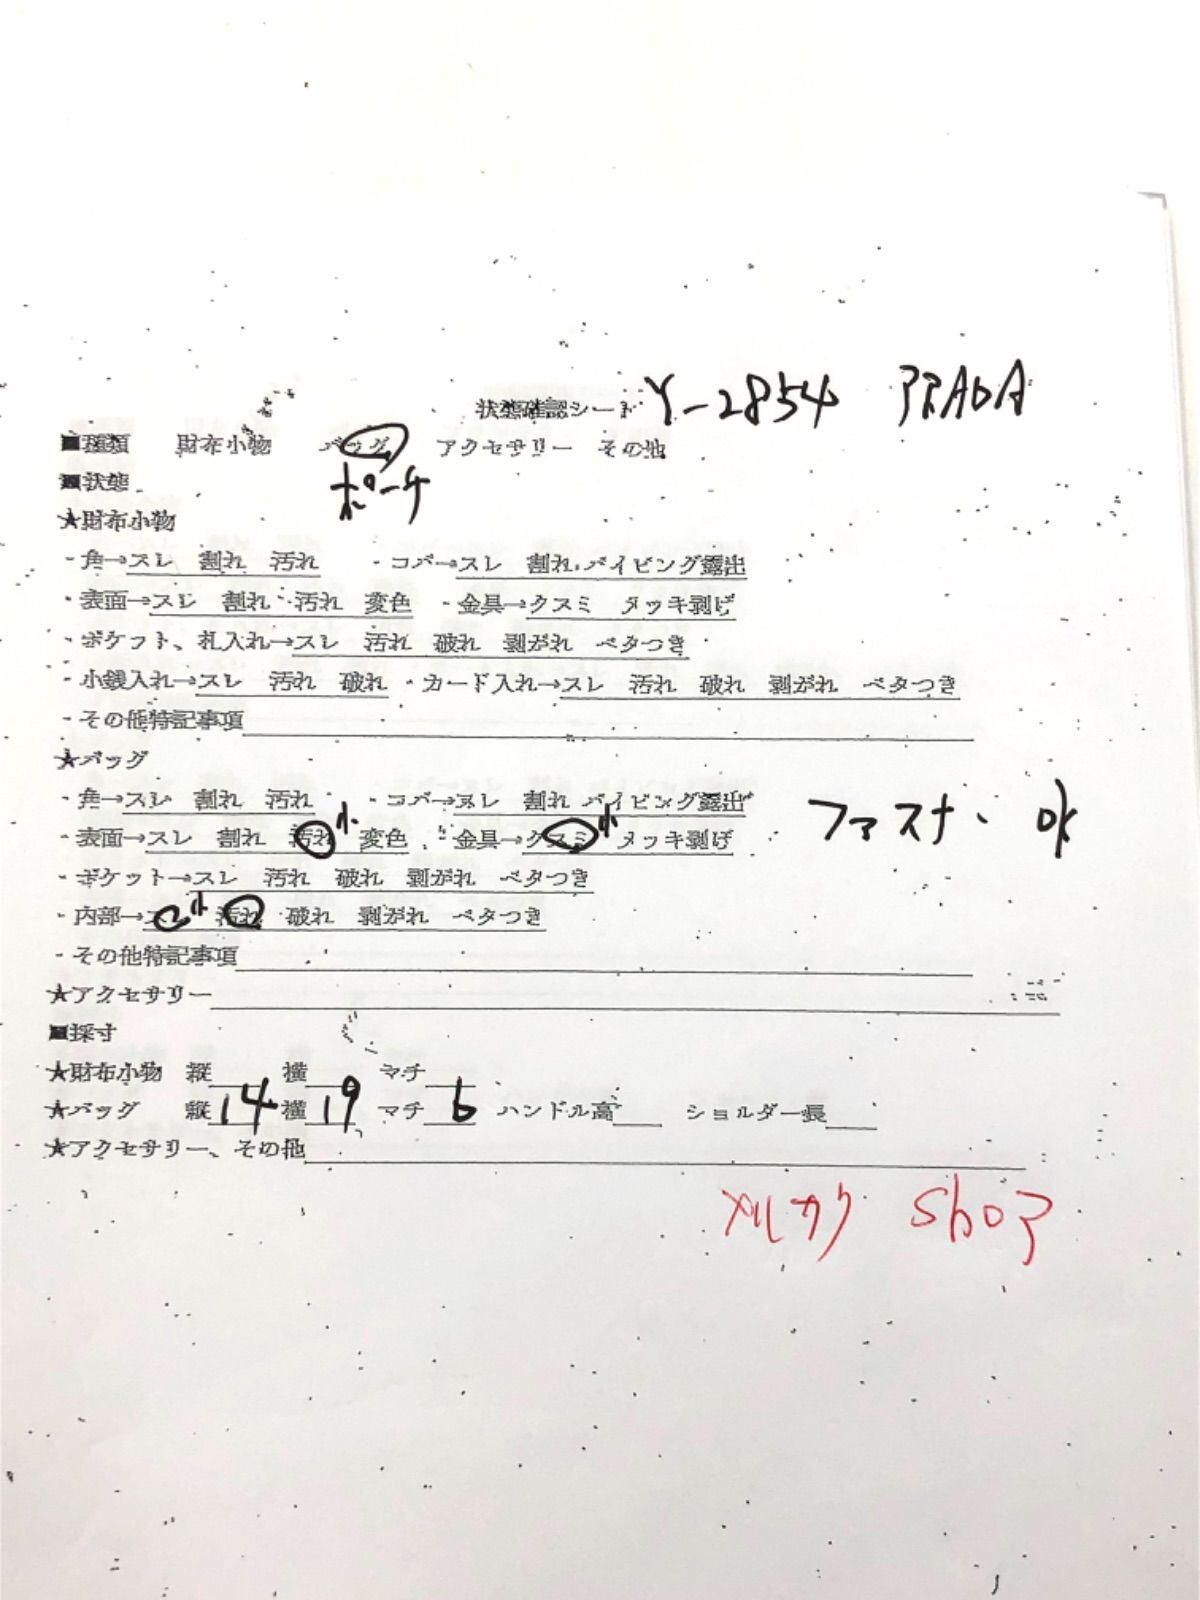 状態確認シート Y-2854 PRADA
■種類 財布小物 バッグ アクセサリー その他
■状態 ポーチ
★財布小物
・角→スレ 割れ 汚れ ・コバ→スレ 割れ パイピング露出
・表面→スレ 割れ 汚れ 変色 ・金具→クスミ メッキ剥げ
・ポケット、札入れ→スレ 汚れ 破れ 剥がれ ベタつき
・小銭入れ→スレ 汚れ 破れ ・カード入れ→スレ 汚れ 破れ 剥がれ ベタつき
・その他特記事項
★バッグ
・角→スレ 割れ 汚れ ・コバ→スレ 割れ パイピング露出
・表面→スレ 割れ 汚れ小 変色 ・金具→クスミ小 メッキ剥げ ファスナー ok
・ポケット→スレ 汚れ 破れ 剥がれ ベタつき
・内部→スレ小 汚れ 破れ 剥がれ ベタつき
・その他特記事項
★アクセサリー
■採寸
★財布小物 縦 横 マチ
★バッグ 縦14 横19 マチ6 ハンドル高 ショルダー長
★アクセサリー、その他
メルカリ Shop